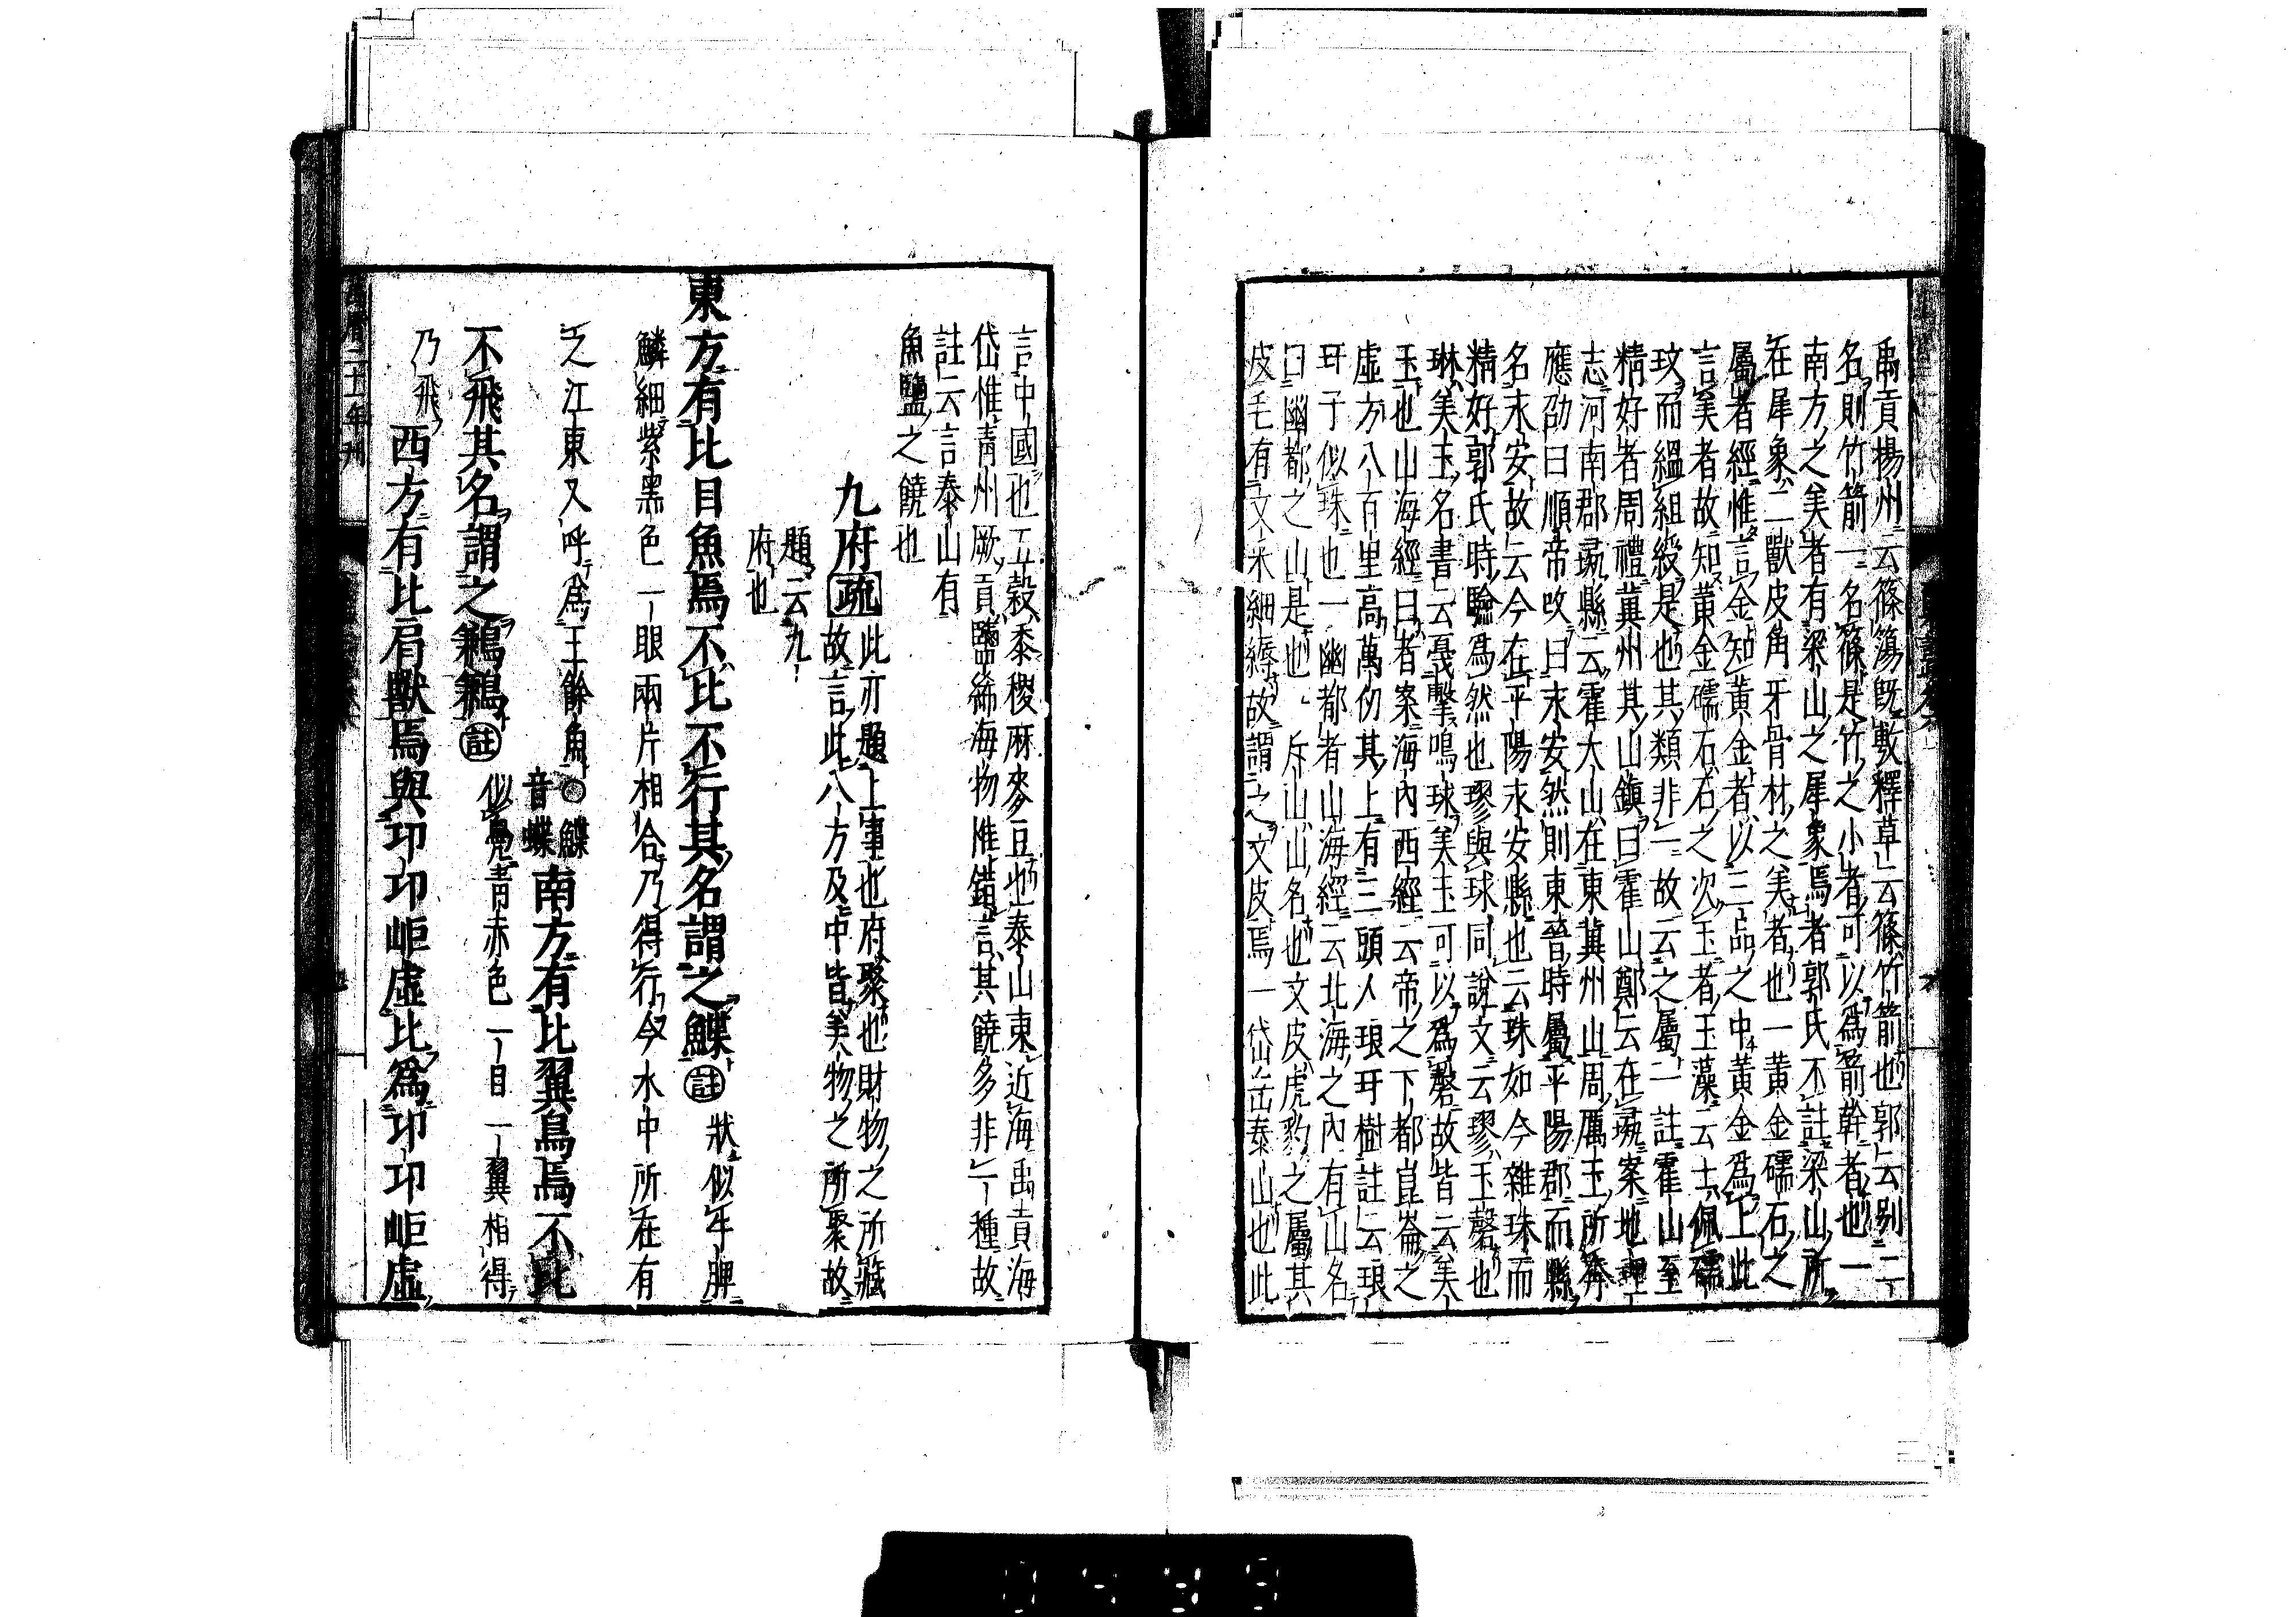 禹貢揚州云篠簜既敷釋草云篠竹箭也郭云别二
名則竹箭一名篠是竹之小者可以爲箭幹者也一
南方之美者有梁山之犀象焉者郭氏不註梁山所
在犀象二獸皮角牙骨材之美者也一黄金礝石之
屬者經惟言金知黄金者以三品之中黄金爲上此
言美者故知黄金礝石石之次玉者玉藻云士佩礝
玟而縕組綬是也其類非一故云之屬一註霍山至
精好者周禮冀州其山鎮曰霍山鄭云在彘案地理
志河南郡彘縣云霍大山在東冀州山周厲王所奔
應劭曰順帝改曰永安然則東晉時屬平陽郡而縣
名永安故云今在平陽永安縣也云珠如今雜珠而
精好郭氏時驗爲然也璆與球同說文云璆玉磬也
琳美玉名書云戞擊鳴球球美玉可以爲磬故皆云美
玉也山海經曰者案海內西經云帝之下都崑崙之
虛方八百里高萬仞其上有三頭人琅玕樹註云琅
玕子似珠也一幽都者山海經云北海之內有山名
曰幽都之山是也斥山山名也文皮虎豹之屬其
皮毛有文采細縟故謂之文皮焉一岱岳泰山也此
言中國也五穀黍稷麻麥豆也泰山東近海禹貢海
岱惟青州厥貢鹽絺海物惟錯言其饒多非一種故
註云言泰山有
魚鹽之饒也
九府疏此亦題上事也府聚也財物之所藏
故言此八方及中皆美物之所聚故
題云九
府也
東方有比目魚焉不比不行其名謂之鰈註狀似牛脾
鱗細紫黑色一眼兩片相合乃得行今水中所在有
之江東又呼爲王餘魚○鰈
音蝶南方有比翼鳥焉不比
不飛其名謂之鶼鶼註似鳧青赤色一目一翼相得
乃飛西方有比肩獸焉與邛邛岠虛比爲邛邛岠虛